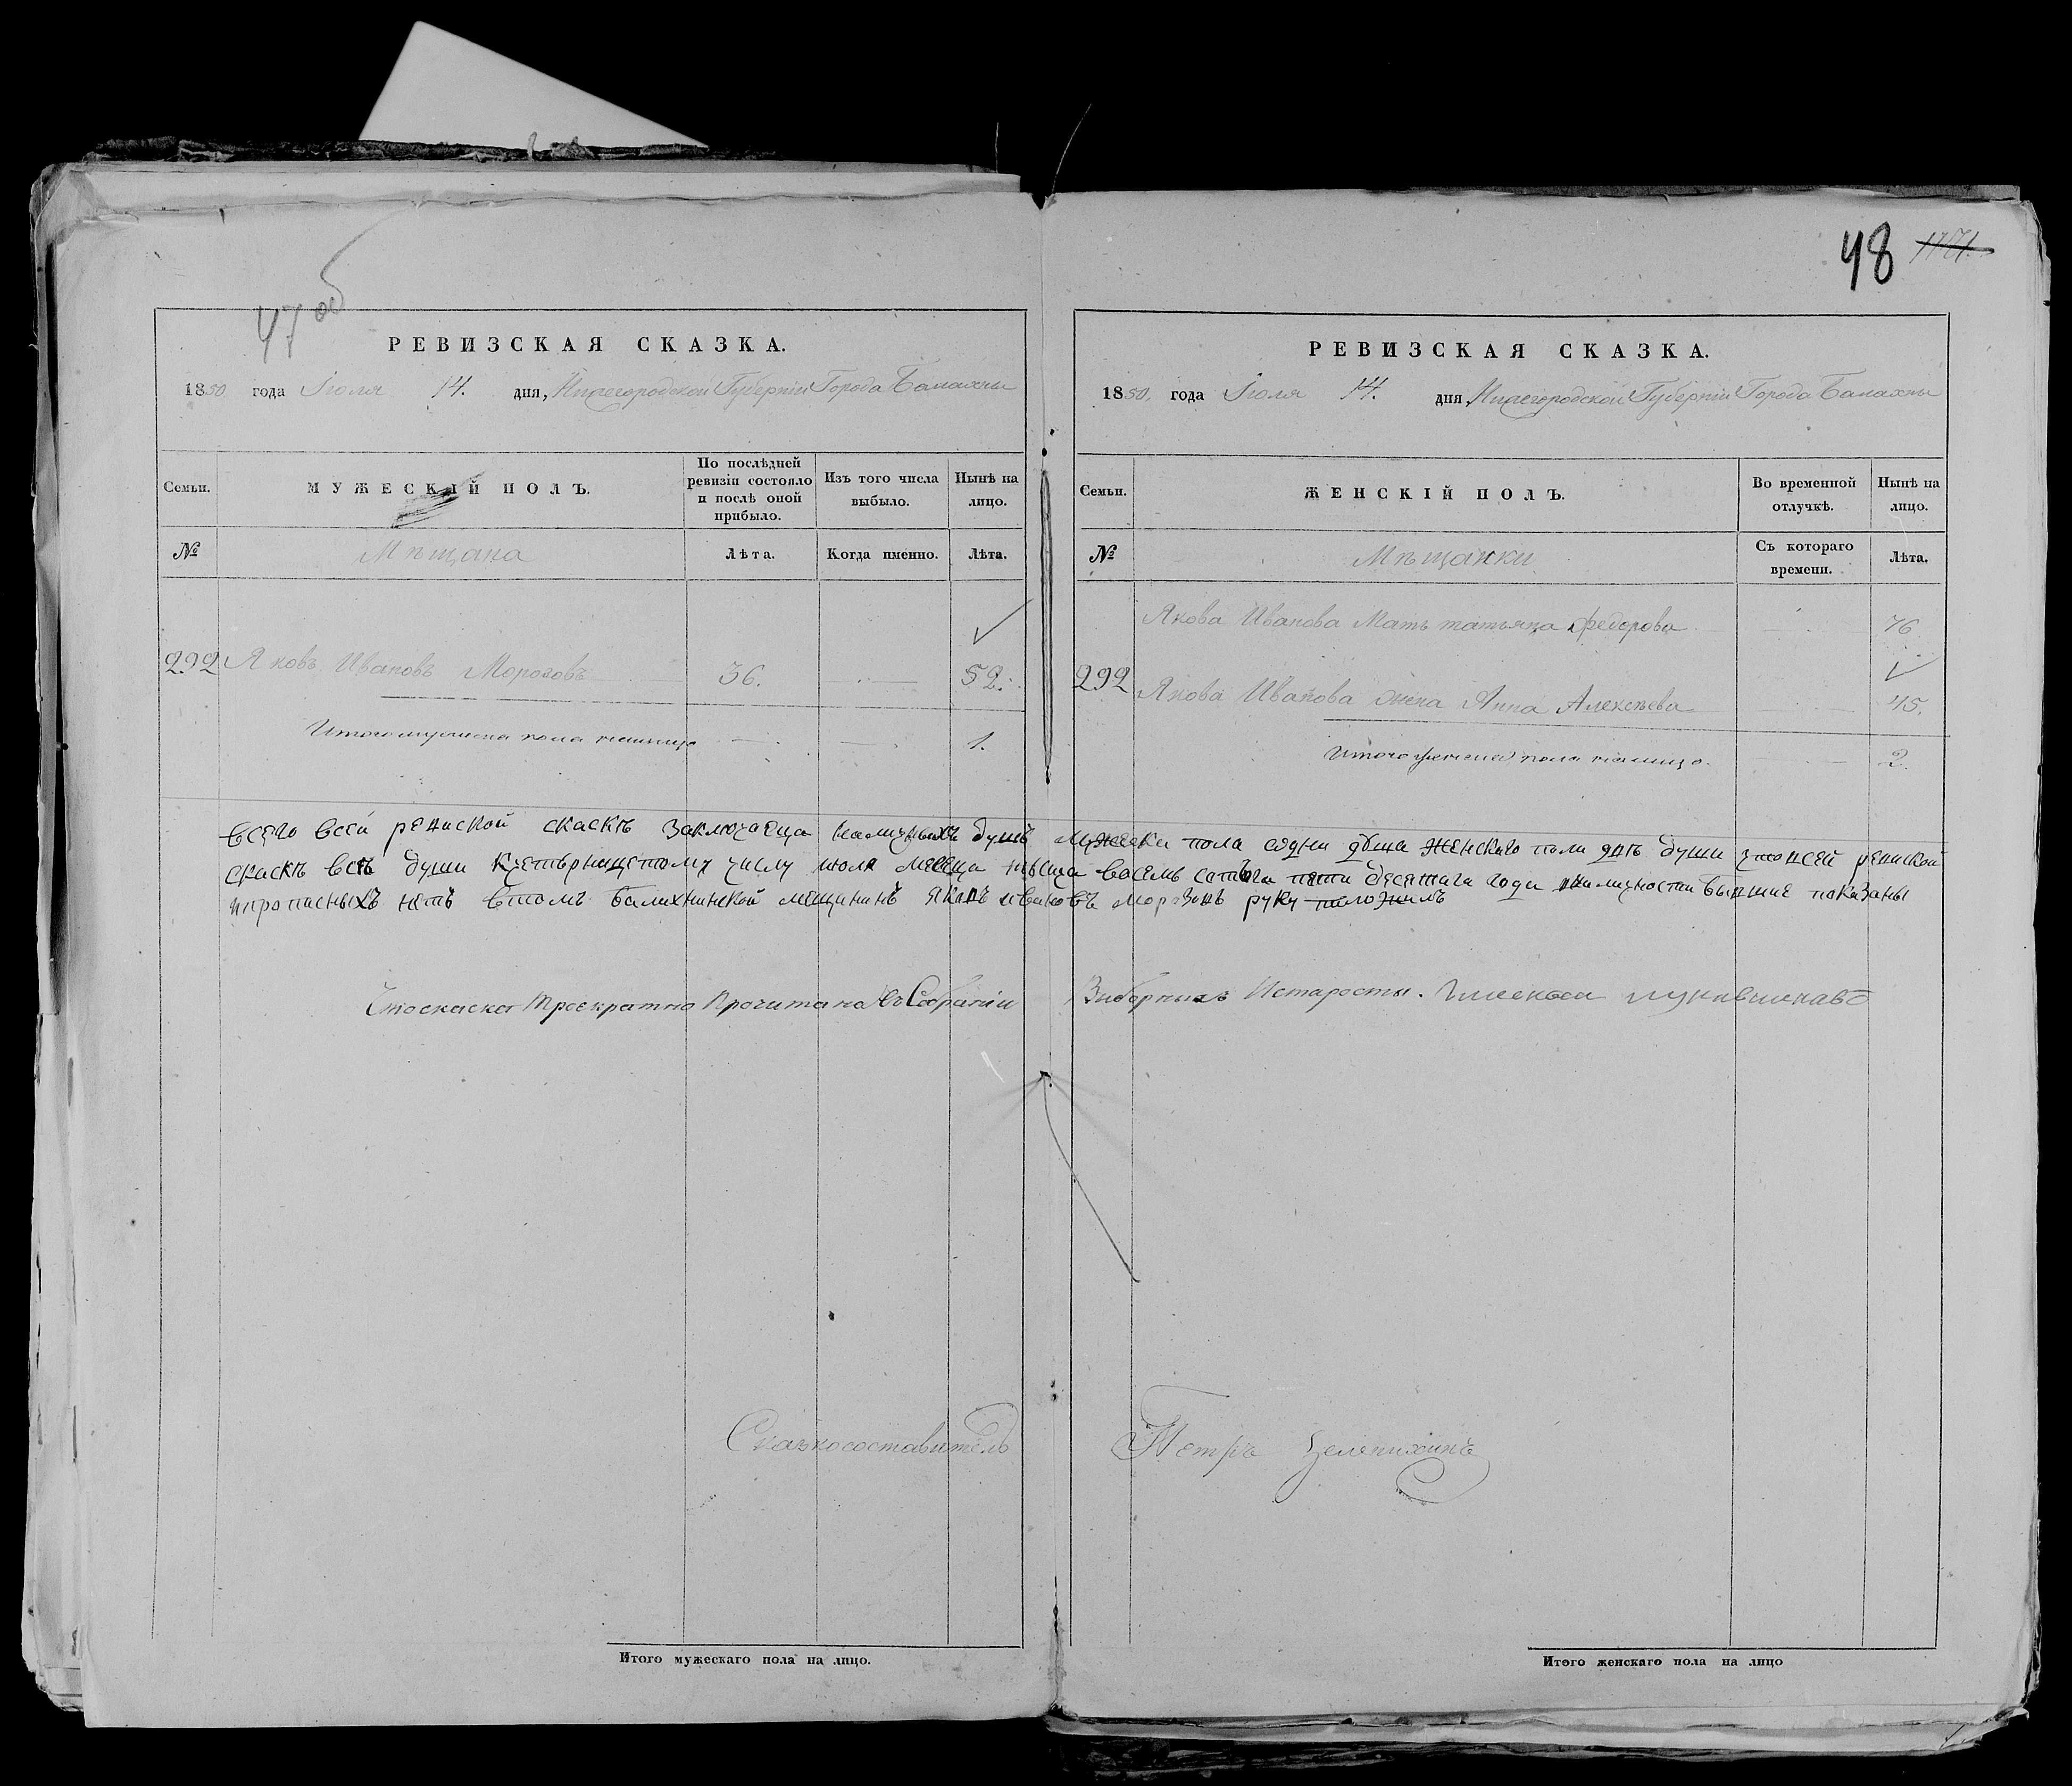 47 об
РЕВИЗСКАЯ СКАЗКА.
1850 года Іюля 14. дня, Нижегородской Губерніи Города Балахны
Семьи.
МУЖЕСКІЙ ПОЛЪ.
По послѣдней ревизіи состояло и послѣ оной прибыло.
Изъ того числа выбыло.
Нынѣ на лицо.
№
Мѣщана
Лѣта.
Когда именно.
Лѣта.
292 Яковъ Ивановъ Морозовъ 36. 52.
Итого мужеска пола налицо 1.
48
РЕВИЗСКАЯ СКАЗКА.
1850, года Іюля 14. дня, Нижегородской Губерніи Города Балахны
Семьи.
ЖЕНСКІЙ ПОЛЪ.
Во временной отлучкѣ.
Нынѣ на лицо.
№
Мѣщанки
Съ котораго времени.
Лѣта.
Якова Иванова Мать татьяна федорова 76.
292 Якова Иванова жена Анна Алексѣева 45.
Итого женска пола налицо. 2.
всего всей ревиской скаскѣ заключаеца наличныхъ душъ мужеска пола одна душа женскаго пола двѣ души что всей ревиской
скаскѣ всѣ души кчетырнацетому числу июля месеца тысяча восемь сотъга пяти десятага года наличности бывшие показаны
ипрописныхъ нетъ втомъ балахнинской мещининъ яковъ ивановъ морозовъ руку положилъ
Сиоскаска Троекратно Прочитана въ Собраніи Выборныхъ Истаросты.
Сказкосоставитель Петръ Зелепихинъ
Итого мужескаго пола на лицо.
Итого женскаго пола на лицо